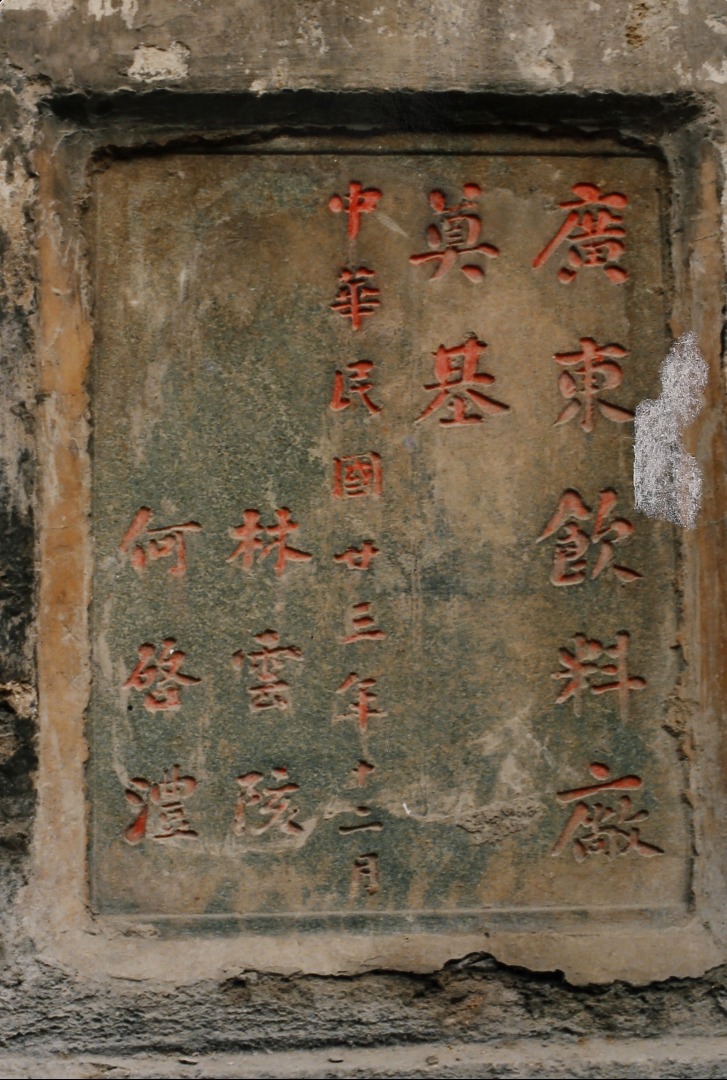 廣東飲料廠
奠基
中華民國廿三年十二月
林雲陔
何啓澧